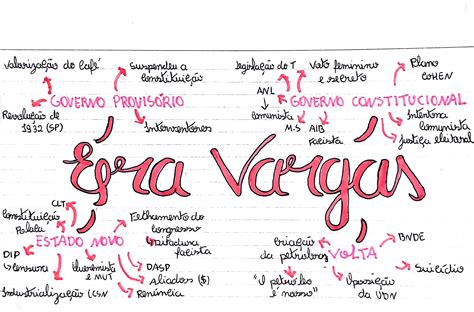 valorização do café
suspendeu a
constituição
GOVERNO PROVISÓRIO
Revolução de
1932 (SP)
Interventores
legislação do T
Voto feminino
e secreto
Plano
COHEN
ANL
GOVERNO CONSTITUCIONAL
comunista
M.S
AIB
Fascista
Intentona
comunista
Justiça eleitoral
Era Vargas
CLT
constituição
Polaca
Fechamento do
congresso
fascista
ESTADO NOVO
DIP
censura
queremismo
e MUT
DASP
Aliados ($)
Industrialização (CSN
Renúncia
criação
da petrobras
VOLTA
BNDE
Suicídio
"O petróleo
é nosso"
Oposição
da UDN